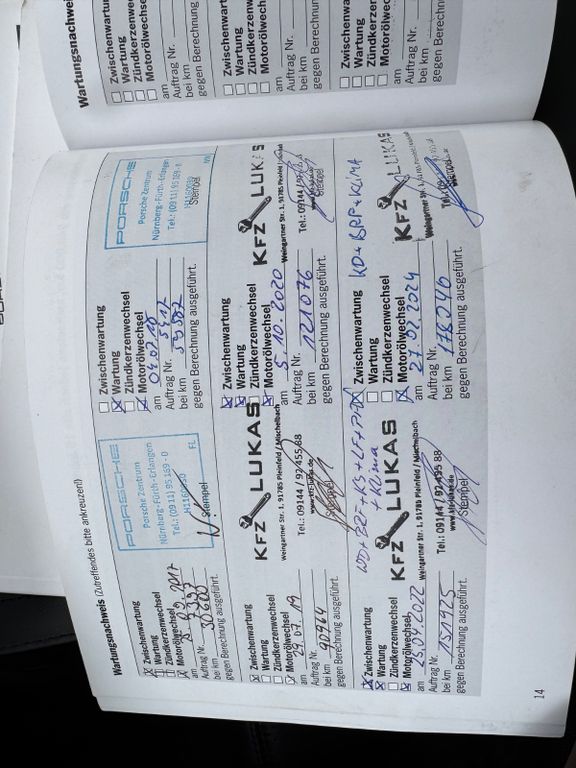 Wartungsnachweis (Zutreffendes bitte ankreuzen!)
Zwischenwartung
Wartung
Zündkerzenwechsel
Motorölwechsel
am
Auftrag Nr.
bei km 30600
gegen Berechnung ausgeführt.
PORSCHE
Porsche Zentrum
Nürnberg-Fürth-Erlangen
Tel.: (0911) 95 169 - 0
H1160030
FL
Stempel
Zwischenwartung
Wartung
Zündkerzenwechsel
Motorölwechsel
am 04.07.18
Auftrag Nr.
bei km
gegen Berechnung ausgeführt.
PORSCHE
Porsche Zentrum
Nürnberg-Fürth-Erlangen
Tel.: (0911) 95 169 - 0
H1160030
Stempel
Zwischenwartung
Wartung
Zündkerzenwechsel
Motorölwechsel
am 29.07.19
Auftrag Nr.
bei km 90764
gegen Berechnung ausgeführt.
KFZ LUKAS
Weingartner Str. 1, 91785 Pleinfeld / Mischelbach
Tel.: 09144 / 92 455 88
www.kfz-lukas.de
Stempel
Zwischenwartung
Wartung
Zündkerzenwechsel
Motorölwechsel
am 5.10.2020
Auftrag Nr.
bei km 121076
gegen Berechnung ausgeführt.
KFZ LUKAS
Weingartner Str. 1, 91785 Pleinfeld
Tel.: 09144
Stempel
+ Klima
Zwischenwartung
Wartung
Zündkerzenwechsel
Motorölwechsel
am 25.04.2022
Auftrag Nr.
bei km 151925
gegen Berechnung ausgeführt.
KFZ LUKAS
Weingartner Str. 1, 91785 Pleinfeld / Mischelbach
Tel.: 09144 / 92 455 88
www.kfz-lukas.de
Stempel
KD + BPF + KLIMA
Zwischenwartung
Wartung
Zündkerzenwechsel
Motorölwechsel
am 27.02.2024
Auftrag Nr.
bei km 178246
gegen Berechnung ausgeführt.
KFZ LUKAS
Weingartner Str. 1,
14
Wartungsnachweis
Zwischenwartung
Wartung
Zündkerzenwechsel
Motorölwechsel
am
Auftrag Nr.
bei km
gegen Berechnung
Zwischenwartung
Wartung
Zündkerzenwechsel
Motorölwechsel
am
Auftrag Nr.
bei km
gegen Berechnung
Zwischenwartung
Wartung
Zündkerzenwechsel
Motorölwechsel
am
Auftrag Nr.
bei km
gegen Berechnung